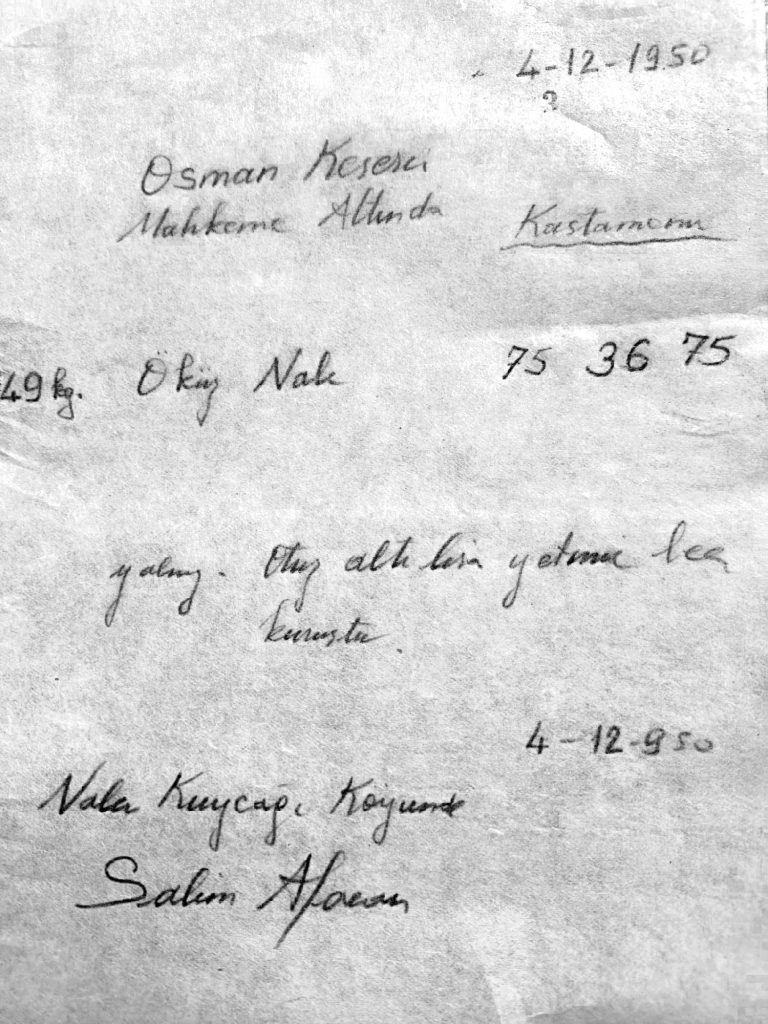 4-12-1950
3
Osman Keserci
Mahkeme Altında Kastamonu
49 kg. Öküz Nalı 75 36 75
yalnız. Otuz altı lira yetmiş beş
kuruştu.
4-12-950
Kuycağı Köyünde
Salim